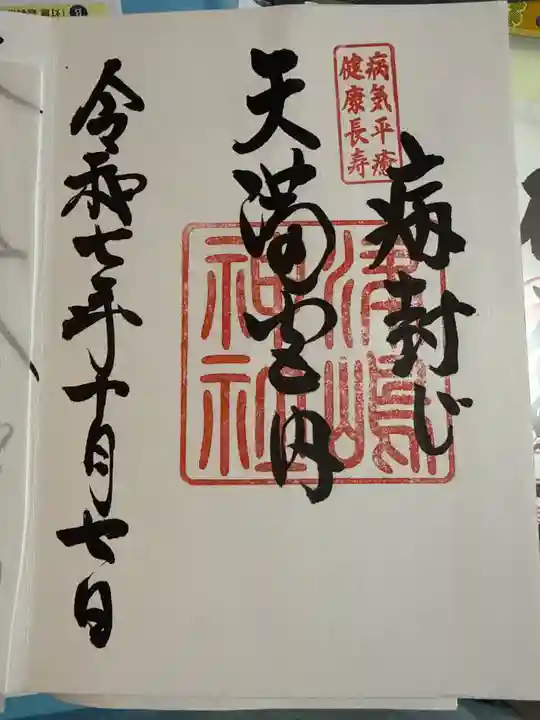 病気平癒
健康長寿
病封じ
天満宮内
津嶋
神社
令和七年十月七日